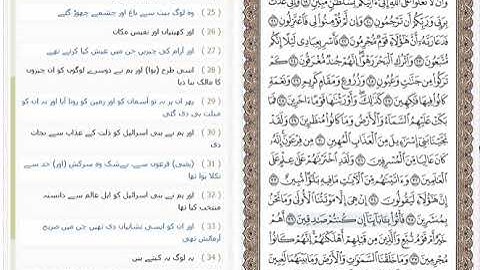 وہ لوگ بہت سے باغ اور چشمے چھوڑ گئے ( 25 )
اور کھیتیاں اور نفیس مکان ( 26 )
اور آرام کی چیزیں جن میں عیش کیا کرتے تھے ( 27 )
اسی طرح (ہوا) اور ہم نے دوسرے لوگوں کو ان چیزوں ( 28 )
کا مالک بنا دیا
پھر ان پر نہ تو آسمان کو اور زمین کو رونا آیا اور نہ ان کو ( 29 )
مہلت ہی دی گئی
اور ہم نے بنی اسرائیل کو ذلت کے عذاب سے نجات ( 30 )
دی
(یعنی) فرعون سے۔ بےشک وہ سرکش (اور) حد سے ( 31 )
نکلا ہوا تھا
اور ہم نے بنی اسرائیل کو اہل عالم سے دانستہ ( 32 )
منتخب کیا تھا
اور ان کو ایسی نشانیاں دی تھیں جن میں صریح ( 33 )
آزمائش تھی
یہ لوگ یہ کہتے ہیں ( 34 )
وَأَن لَّا تَعْلُوا عَلَى اللَّهِ إِنِّي آتِيكُم بِسُلْطَانٍ مُّبِينٍ وَإِنِّي عُذْتُ
بِرَبِّي وَرَبِّكُمْ أَن تَرْجُمُونِ وَإِن لَّمْ تُؤْمِنُوا لِي فَاعْتَزِلُونِ
فَدَعَا رَبَّهُ أَنَّ هَٰؤُلَاءِ قَوْمٌ مُّجْرِمُونَ فَأَسْرِ بِعِبَادِي لَيْلًا إِنَّكُم
مُّتَّبَعُونَ وَاتْرُكِ الْبَحْرَ رَهْوًا إِنَّهُمْ جُندٌ مُّغْرَقُونَ كَمْ
تَرَكُوا مِن جَنَّاتٍ وَعُيُونٍ وَزُرُوعٍ وَمَقَامٍ كَرِيمٍ وَنَعْمَةٍ
كَانُوا فِيهَا فَاكِهِينَ كَذَٰلِكَ وَأَوْرَثْنَاهَا قَوْمًا آخَرِينَ فَمَا
بَكَتْ عَلَيْهِمُ السَّمَاءُ وَالْأَرْضُ وَمَا كَانُوا مُنظَرِينَ وَلَقَدْ
نَجَّيْنَا بَنِي إِسْرَائِيلَ مِنَ الْعَذَابِ الْمُهِينِ مِن فِرْعَوْنَ إِنَّهُ
كَانَ عَالِيًا مِّنَ الْمُسْرِفِينَ وَلَقَدِ اخْتَرْنَاهُمْ عَلَىٰ عِلْمٍ عَلَى
الْعَالَمِينَ وَآتَيْنَاهُم مِّنَ الْآيَاتِ مَا فِيهِ بَلَاءٌ مُّبِينٌ إِنَّ
هَٰؤُلَاءِ لَيَقُولُونَ إِنْ هِيَ إِلَّا مَوْتَتُنَا الْأُولَىٰ وَمَا نَحْنُ
بِمُنشَرِينَ فَأْتُوا بِآبَائِنَا إِن كُنتُمْ صَادِقِينَ أَهُمْ
خَيْرٌ أَمْ قَوْمُ تُبَّعٍ وَالَّذِينَ مِن قَبْلِهِمْ أَهْلَكْنَاهُمْ إِنَّهُمْ كَانُوا
مُجْرِمِينَ وَمَا خَلَقْنَا السَّمَاوَاتِ وَالْأَرْضَ وَمَا بَيْنَهُمَا لَاعِبِينَ